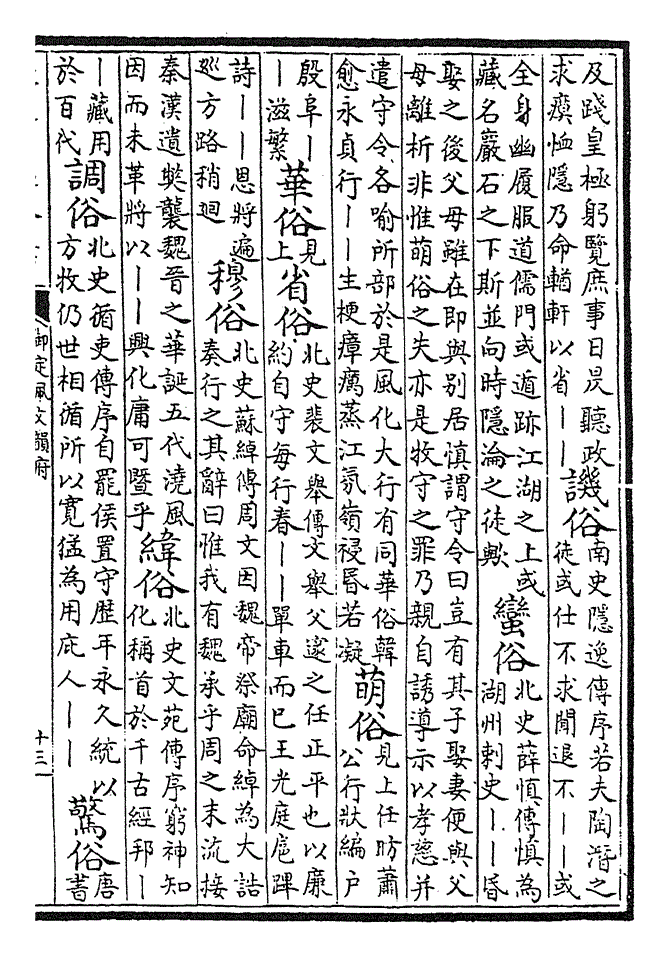 及踐皇極躬覽庶事日昃聽政
求瘼恤隱乃命輶軒以省丨丨
譏俗
南史隱逸傳序若夫陶潛之
徒或仕不求聞退不丨丨或
全身幽履服道儒門或遁跡江湖之上或
藏名巖石之下斯並向時隱淪之徒歟
蠻俗
北史薛慎傳慎為
湖州刺史丨丨昏
娶之後父母雖在即與別居慎謂守令曰豈有其子娶妻便與父
母離析非惟萌俗之失亦是牧守之罪乃親自誘導示以孝慈并
遣守令各喻所部於是風化大行有同華俗韓
愈永貞行丨丨生梗瘴癘蒸江氛嶺祲昏若凝
萌俗
見上任昉蕭
公行狀編户
殷阜丨
丨滋繁
華俗
見
上
省俗
北史裴文舉傳文舉父邃之任正平也以廉
約自守每行春丨丨單車而已王光庭扈蹕
詩丨丨思將遍
巡方路稍迴
穆俗
北史蘇綽傳周文因魏帝祭廟命綽為大誥
奏行之其辭曰惟我有魏承乎周之末流接
秦漢遺獘襲魏晉之華誕五代澆風
因而未革將以丨丨興化庸可暨乎
緯俗
北史文苑傳序窮神知
化稱首於千古經邦丨
丨藏用
於百代
調俗
北史循吏傳序自罷侯置守歷年永久統以
方牧仍世相循所以寬猛為用庇人丨丨
驚俗
唐
書
御定佩文韻府